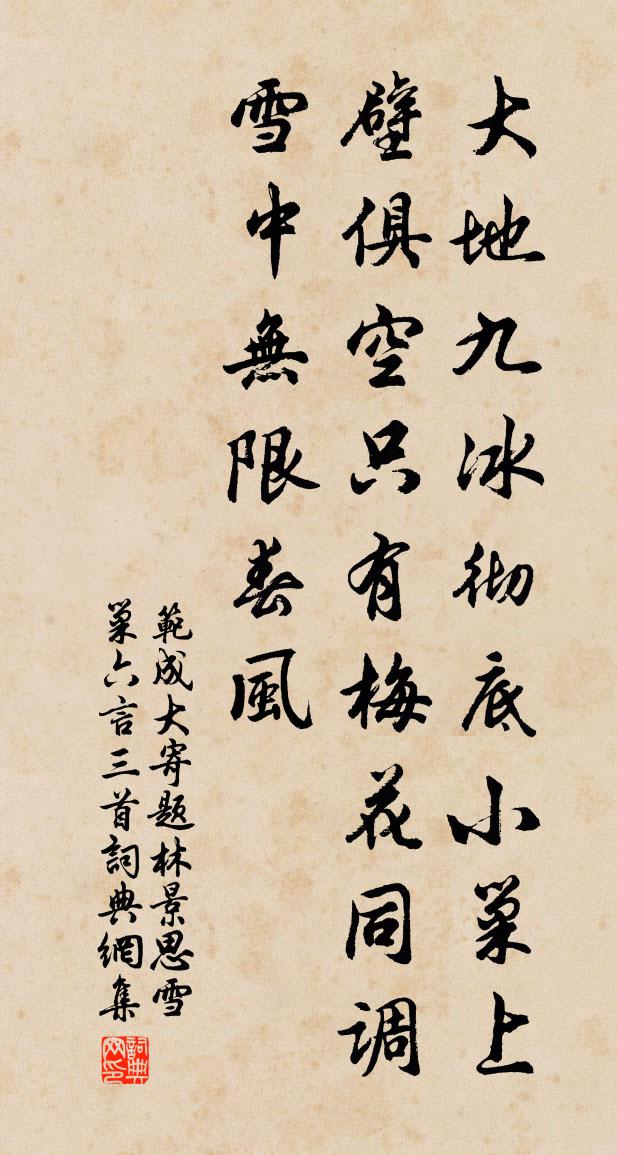 大地九冰彻底小巢上
壁俱空只有梅花同调
雪中無限春風
範成大寄题林景思雪
巢六言三首詞典網集
詞典网印